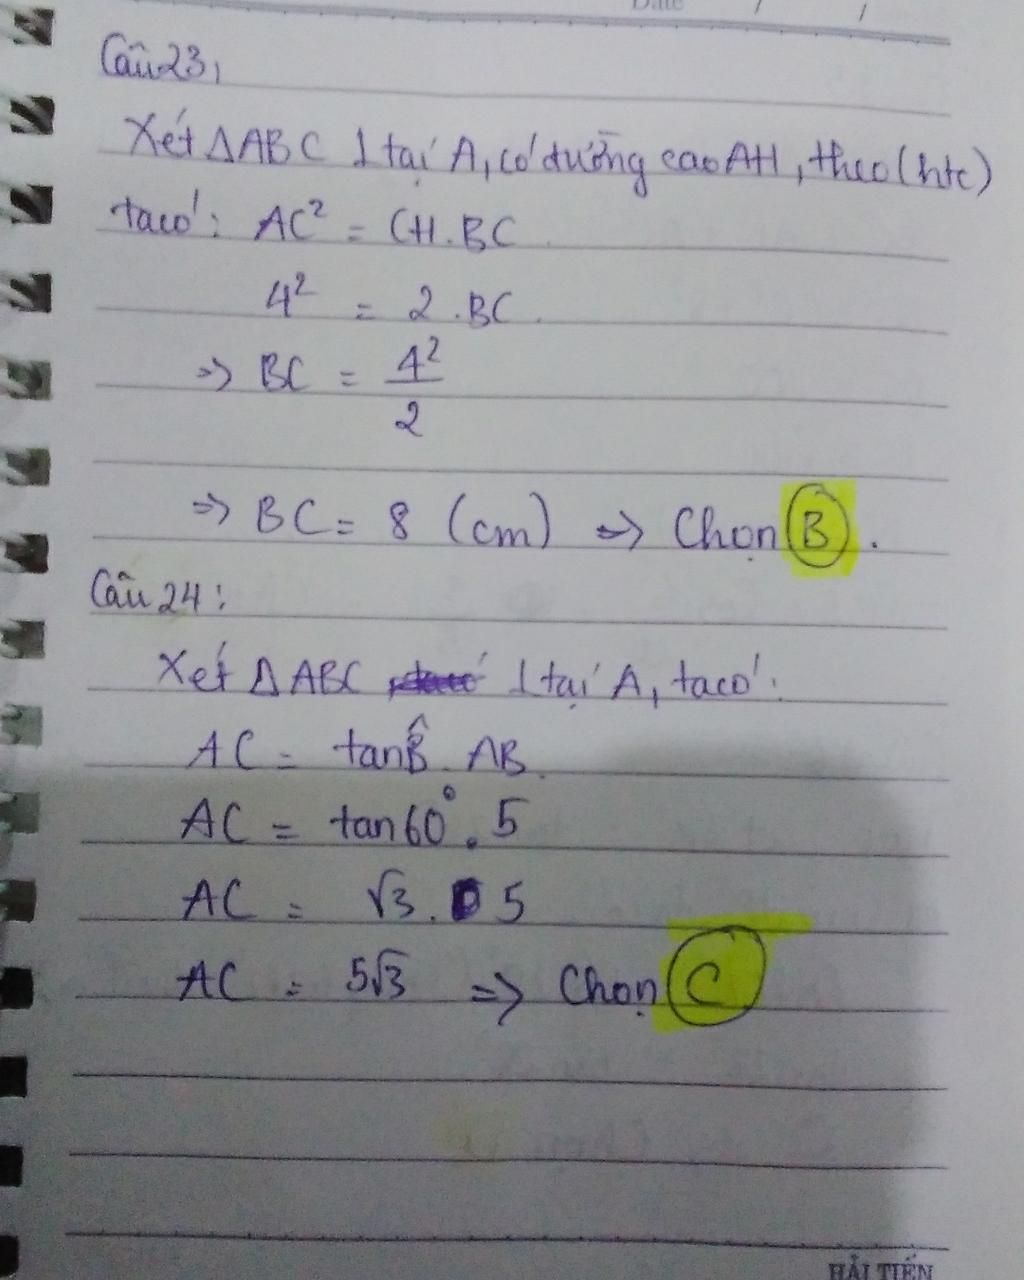 Date / /
Câu 23,
Xét ΔABC ⊥ tại A, có đường cao AH, theo (htc)
ta có: AC² = CH.BC
4² = 2.BC.
=> BC = 4²/2
=> BC = 8 (cm) => Chọn B.
Câu 24:
Xét ΔABC ⊥ tại A, ta có:
AC = tanB̂. AB.
AC = tan60°. 5
AC = √3. 5
AC = 5√3 => Chọn C
HẢI TIẾN